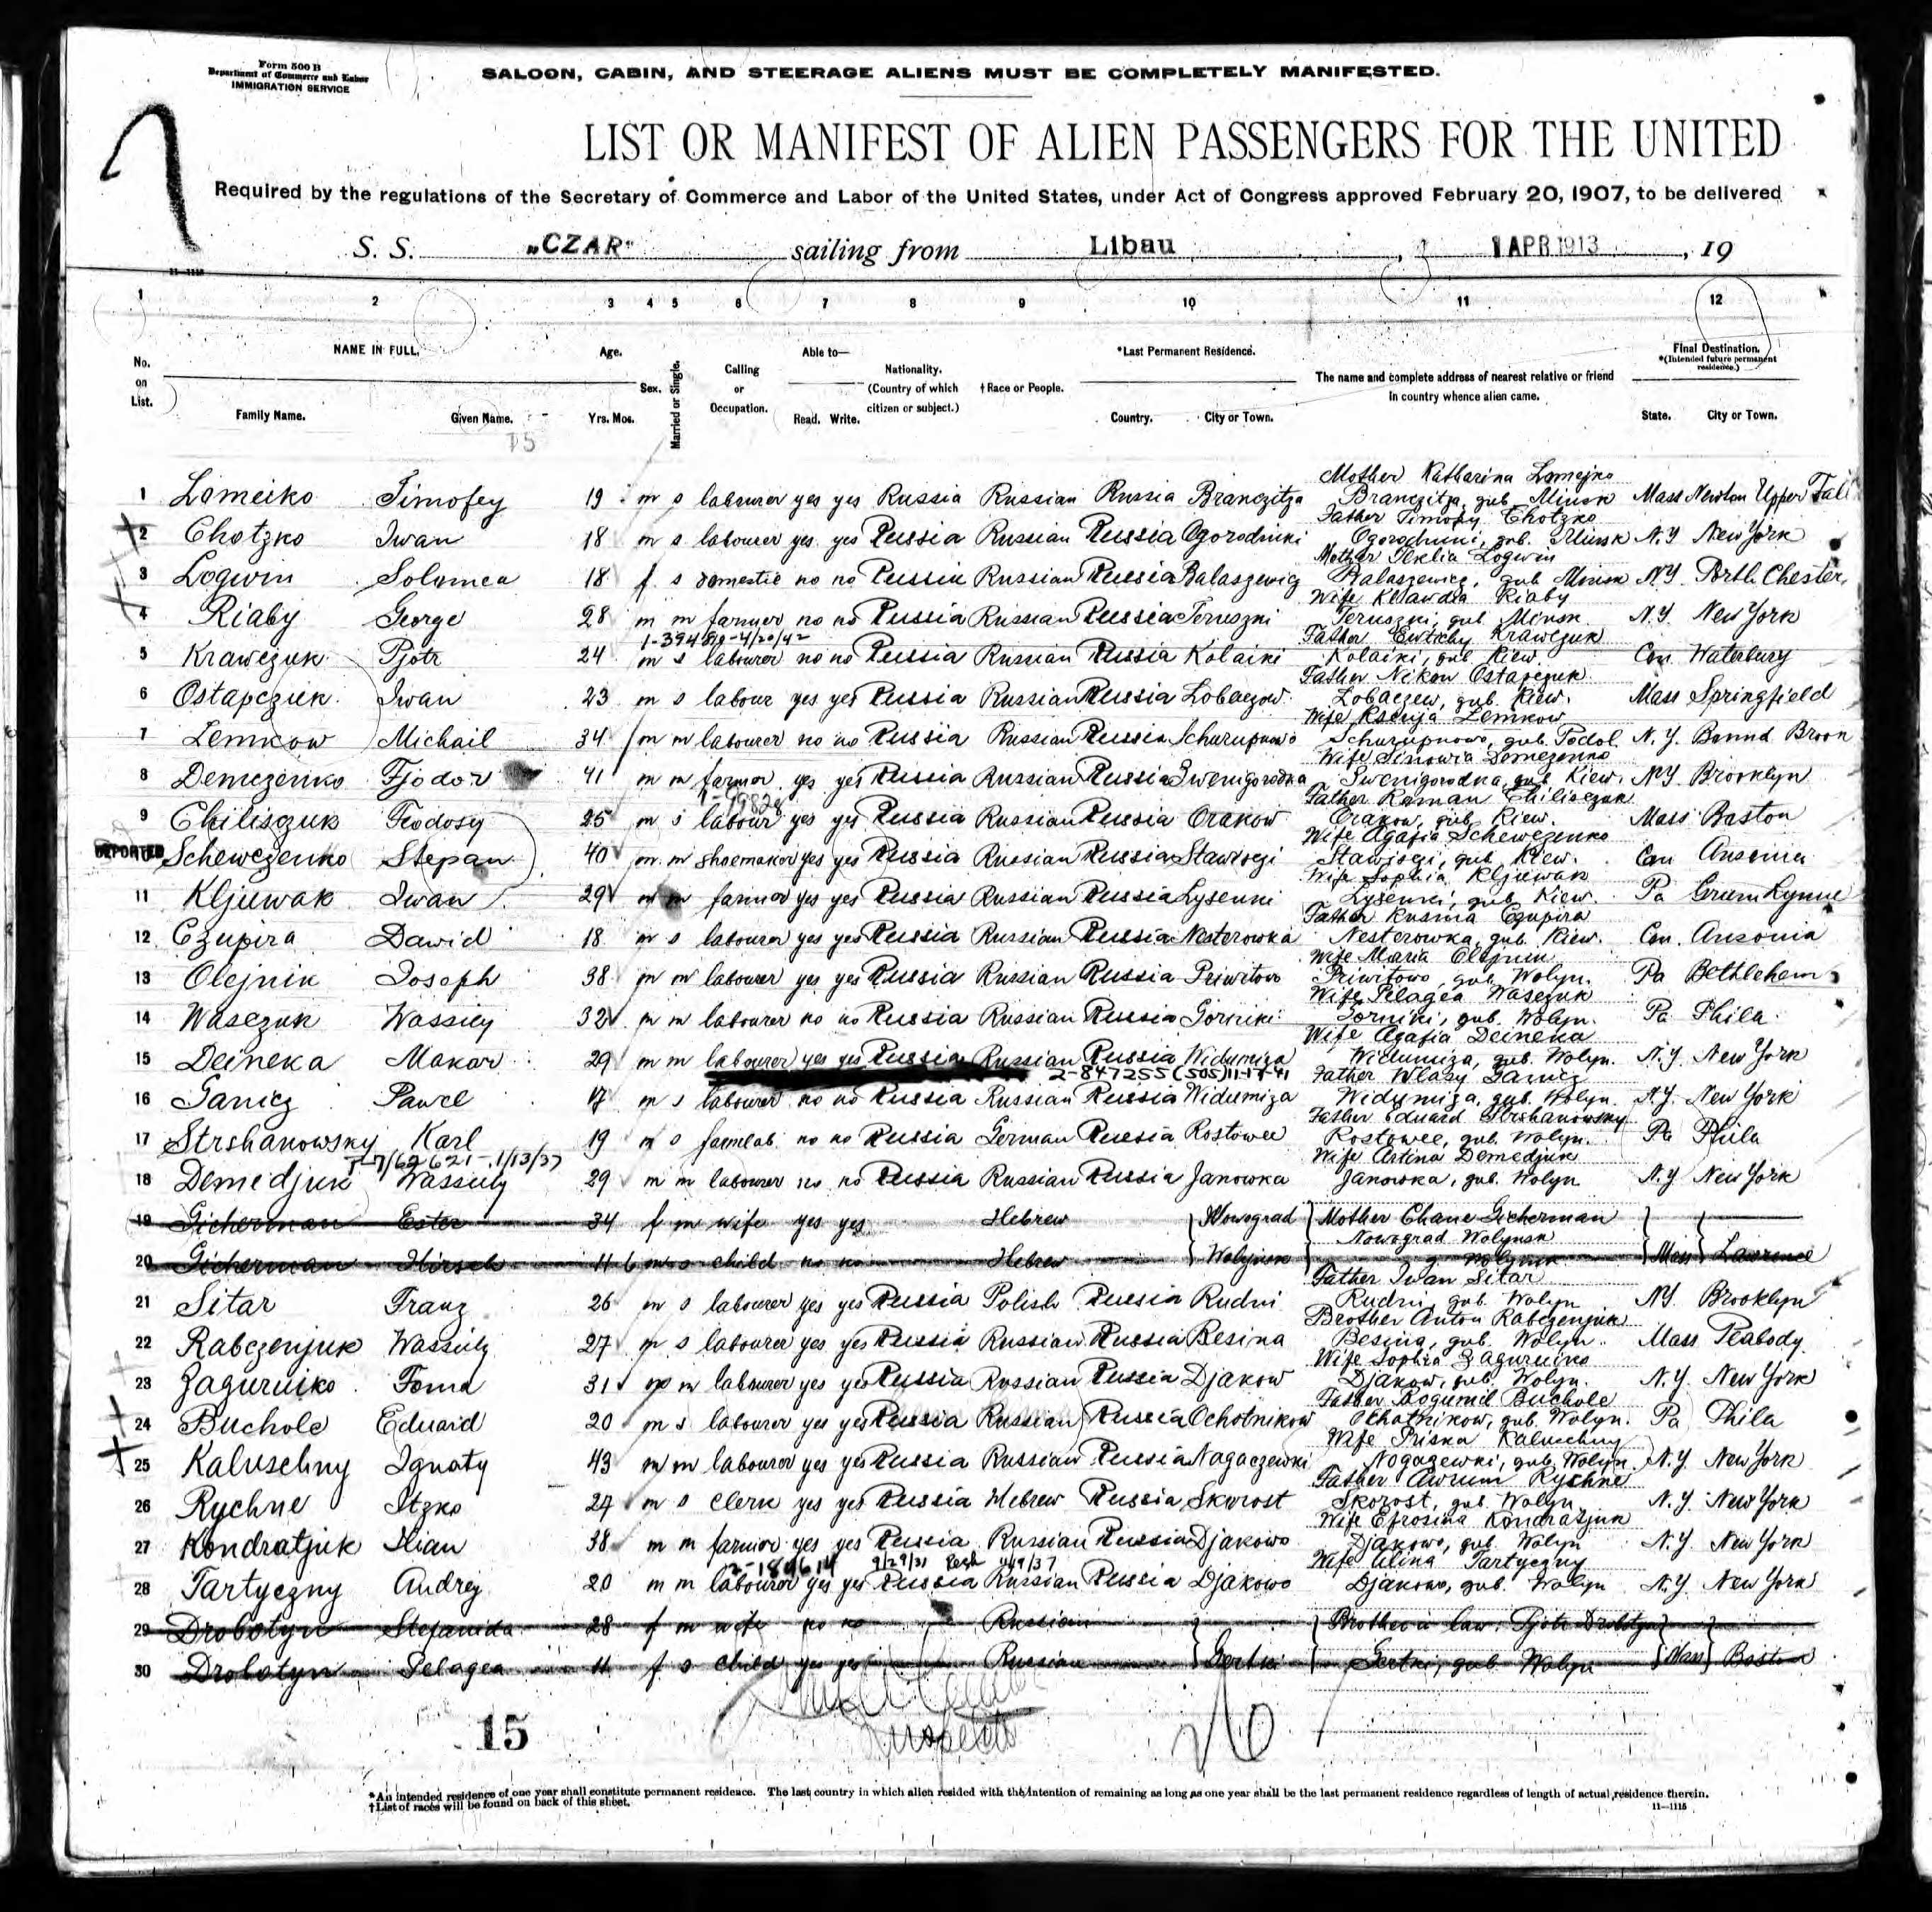 Form 500 B
Department of Commerce and Labor
IMMIGRATION SERVICE
SALOON, CABIN, AND STEERAGE ALIENS MUST BE COMPLETELY MANIFESTED.
LIST OR MANIFEST OF ALIEN PASSENGERS FOR THE UNITED
Required by the regulations of the Secretary of Commerce and Labor of the United States, under Act of Congress approved February 20, 1907, to be delivered
S. S. "CZAR" sailing from Libau, 1 APR 1913, 19
11—1115
1 2 3 4 5 6 7 8 9 10 11 12
No. on List.
NAME IN FULL.
Family Name. Given Name.
Age.
Yrs. Mos.
Sex.
Married or Single.
Calling or Occupation.
Able to—
Read. Write.
Nationality.
(Country of which citizen or subject.)
†Race or People.
*Last Permanent Residence.
Country. City or Town.
The name and complete address of nearest relative or friend in country whence alien came.
Final Destination.
*(Intended future permanent residence.)
State. City or Town.
Mother Katharina Lomejko
1 Lomeiko Timofey 19 m s labourer yes yes Russia Russian Russia Branczitza Branczitza, gub. Minsk Mass Newton Upper Fall
Father Timofy Chotzko
2 Chotzko Iwan 18 m s labourer yes yes Russia Russian Russia Ogorodniki Ogorodniki, gub. Minsk N.Y New York
Mother Teklia Logwin
3 Logwin Solomea 18 f. s domestic no no Russia Russian Russia Balaszewicz Balaszewicz, gub Minsk N.Y. Porth Chester,
Wife Klawdia Riaby
4 Riaby George 28 m m farmer no no Russia Russian Russia Teruszki Teruszki, gub. Minsk N.Y. New York
1-394 4/20/42 Father Krawczuk
5 Krawczuk Pjotr 24 m s labourer no no Russia Russian Russia Kolaiki Kolaiki, gub Kiew. Con Waterbury
Father Nikon Ostapczuk
6 Ostapczuk Iwan 23 m s labour yes yes Russia Russian Russia Lobaczow Lobaczew, gub. Kiew. Mass Springfield
Wife Ksenija Lemkow
7 Lemkow Michail 34 m m labourer no no Russia Russian Russia Schurupnowo Schurupnowo, gub. Podol. N.Y. Bound Brook
Wife Simowia Demezenko
8 Demczenko Fjodor 41 m m farmer yes yes Russia Russian Russia Swenigorodka Swenigorodka, gub Kiew. N.Y. Brooklyn
Father Roman Chilisczuk
9 Chilisczuk Feodosy 25 m s labour yes yes Russia Russian Russia Orakow Orakow, gub. Kiew. Mass Boston
Wife Agafia Schewczenko
DEPORTED Schewczenko Stepan 40 m m shoemaker yes yes Russia Russian Russia Stawisczi Stawisczi, gub. Kiew. Con Ansonia
Wife Sophia Kljuwak
11 Kljuwak Iwan 29 m m farmer yes yes Russia Russian Russia Lysenki Lysenki, gub. Kiew. Pa Crum Lynne
Father Kusma Czupira
12 Czupira Dawid 18 m s labourer yes yes Russia Russian Russia Nesterowka Nesterowka, gub. Kiew. Con. Ansonia
Wife Maria Olejnik
13 Olejnik Joseph 38 m m labourer yes yes Russia Russian Russia Priwitowo Priwitowo, gub Wolyn. Pa Bethlehem
Wife Pelagea Wasczuk
14 Wasczuk Wassily 32 m m labourer no no Russia Russian Russia Gorniki Gorniki, gub. Wolyn. Pa Phila.
Wife Agafia Deineka
15 Deineka Makar 29 m m labourer yes yes Russia Russian Russia Widumiza Widumiza, gub. Wolyn. N.Y. New York
2-847255 (505) 11-17-41 Father Wlasy Ganicz
16 Ganicz Pawel 17 m s labourer no no Russia Russian Russia Widumiza Widumiza, gub. Wolyn. N.Y. New York
Father Eduard Strshanowsky
17 Strshanowsky Karl 19 m s farmlab. no no Russia German Russia Rostowee Rostowee, gub. Wolyn. Pa Phila
1/13/37 Wife Artina Demedjuk
18 Demedjuk Wassily 29 m m labourer no no Russia Russian Russia Janowka Janowka, gub. Wolyn N.Y New York
19 Gicherman Ester 34 f m wife yes yes Hebrew Nowograd Mother Chane Gicherman
Nowograd Wolynsk
20 Gicherman Hirsch 11 6 m s child no no Hebrew Wolynsk Wolynsk Mass Lawrence
Father Iwan Sitar
21 Sitar Franz 26 m s labourer yes yes Russia Polish Russia Rudni Rudni, gub. Wolyn N.Y. Brooklyn
Brother Anton Rabczenjuk
22 Rabczenjuk Wassily 27 m s labourer yes yes Russia Russian Russia Besina Besina, gub. Wolyn. Mass Peabody
Wife Sophia Zaguruiko
23 Zaguruiko Foma 31 m m labourer yes yes Russia Russian Russia Djakow Djakow, gub. Wolyn. N.Y. New York
Father Bogumil Buchole
24 Buchole Eduard 20 m s labourer yes yes Russia Russian Russia Ochotnikow Ochotnikow, gub. Wolyn. Pa Phila
Wife Priska Kaluschny
25 Kaluschny Ignaty 43 m m labourer yes yes Russia Russian Russia Nagaczewki Nogazewki, gub. Wolyn. N.Y. New York
Father Awrum Rychne
26 Rychne Itzko 27 m s clerk yes yes Russia Hebrew Russia Skorost Skorost, gub. Wolyn N.Y. New York
Wife Efrosina Kondratjuk
27 Kondratjuk Ilian 38 m m farmer yes yes Russia Russian Russia Djakowo Djakowo, gub. Wolyn N.Y. New York
2-184614 9/29/31 11/9/37 Wife Ulina Tartyczny
28 Tartyczny Andrej 20 m m labourer yes yes Russia Russian Russia Djakowo Djakowo, gub. Wolyn N.Y. New York
29 Drobotyn Stefanida 28 f m wife no no Russian Brother in law: Pjotr Drobotyn
30 Drobotyn Pelagea 11 f s child yes yes Russian Gertki Gertki, gub. Wolyn Mass Boston
15
Inspector
*An intended residence of one year shall constitute permanent residence. The last country in which alien resided with the intention of remaining as long as one year shall be the last permanent residence regardless of length of actual residence therein.
†List of races will be found on back of this sheet.
11—1115